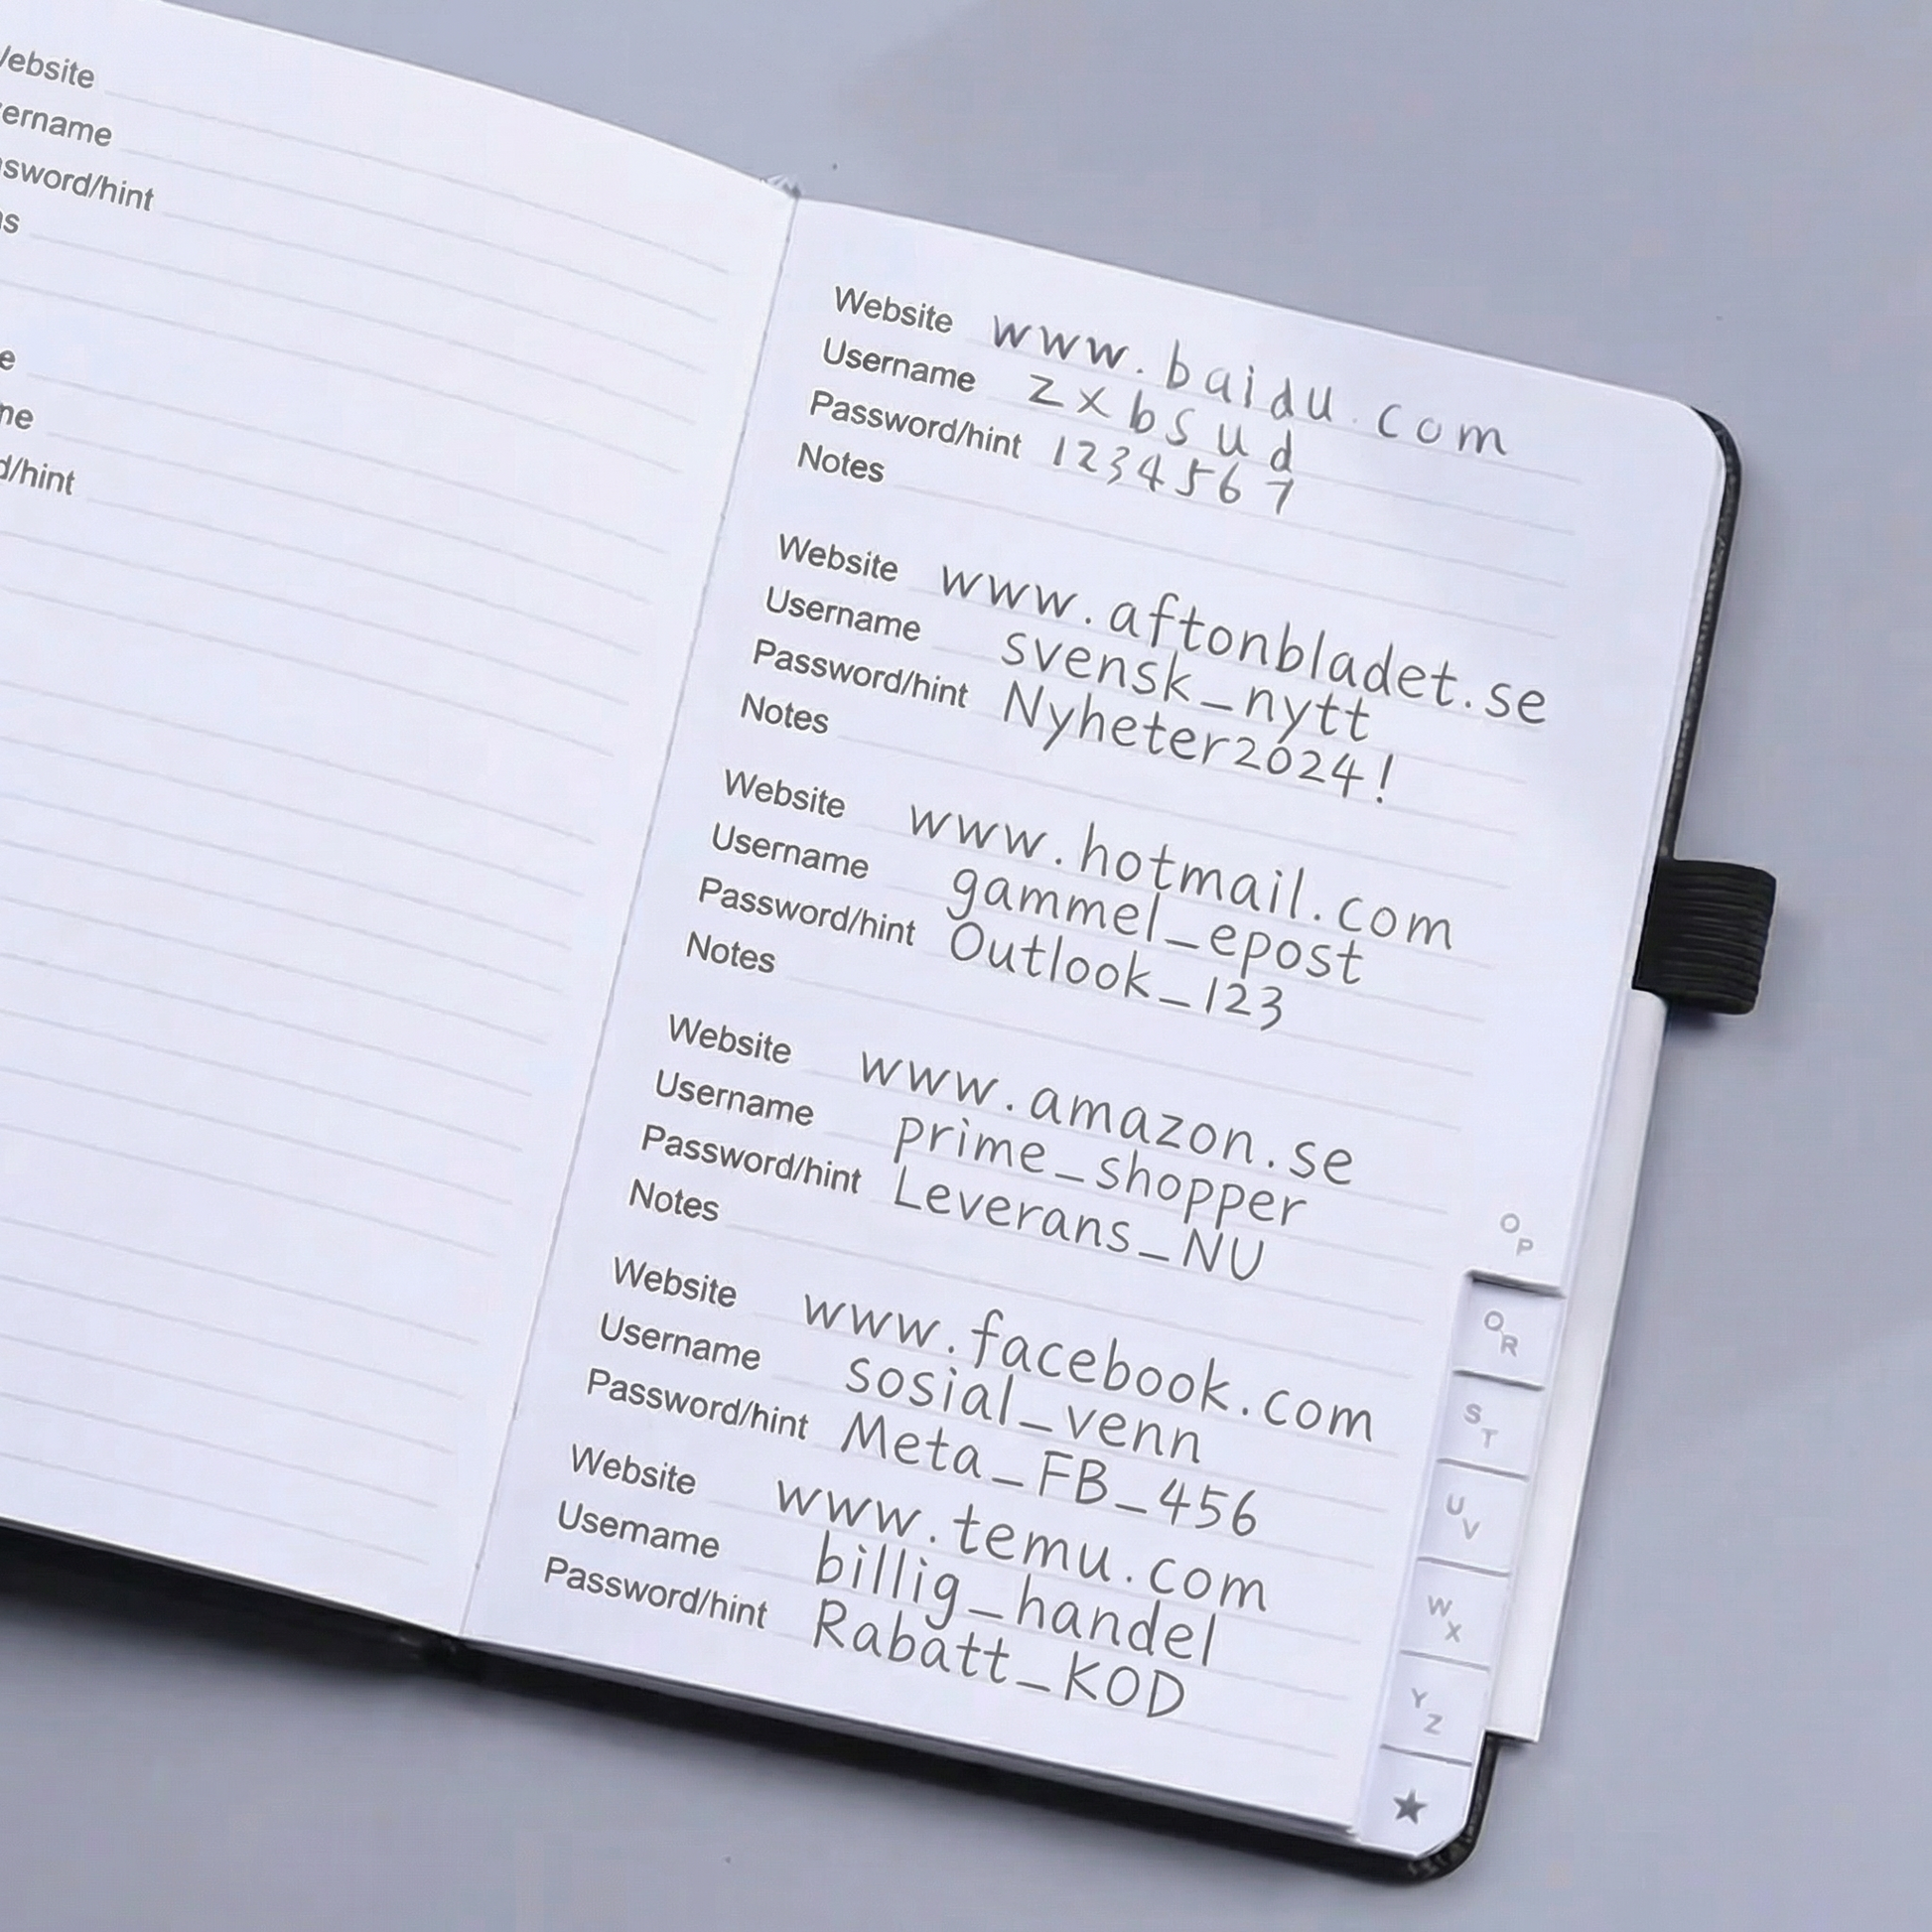 ebsite
ername
sword/hint
s
e
me
d/hint
Website www.baidu.com
Username zxbsud
Password/hint 1234567
Notes
Website www.aftonbladet.se
Username svensk_nytt
Password/hint Nyheter2024!
Notes
Website www.hotmail.com
Username gammel_epost
Password/hint Outlook_123
Notes
Website www.amazon.se
Username prime_shopper
Password/hint Leverans_NU
Notes
Website www.facebook.com
Username sosial_venn
Password/hint Meta_FB_456
Website www.temu.com
Usemame billig_handel
Password/hint Rabatt_KOD
O P
O R
S T
U V
W X
Y Z